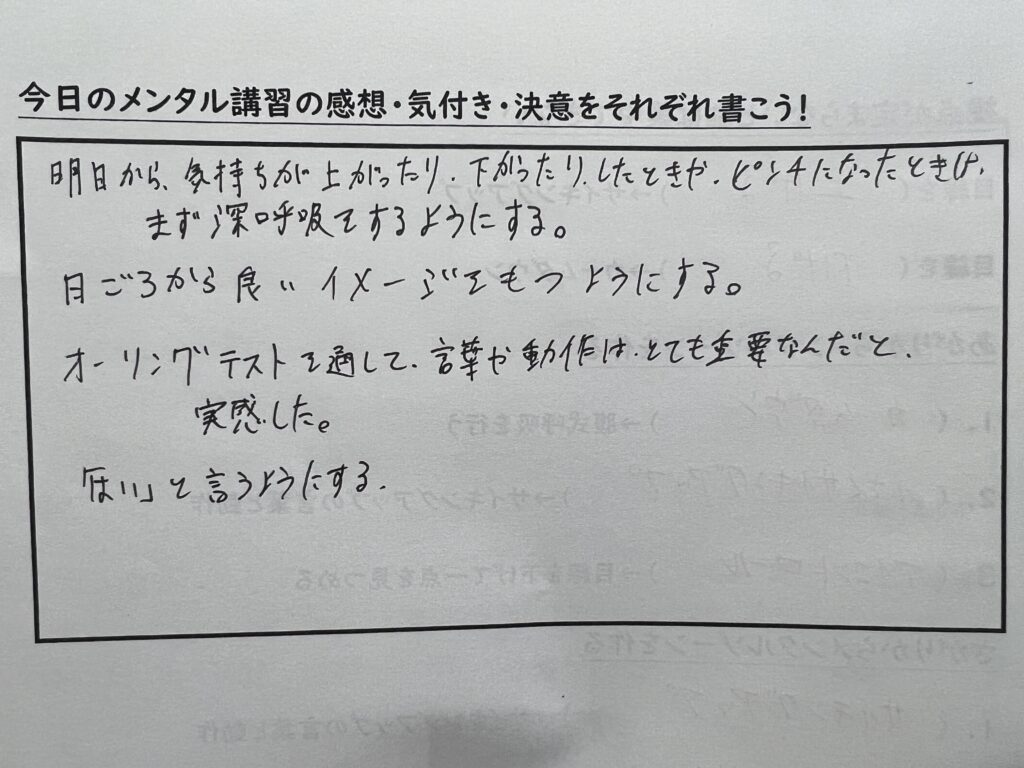 今日のメンタル講習の感想・気付き・決意をそれぞれ書こう!
明日から、気持ちが上がったり、下がったり、したときや、ピンチになったときは、
まず深呼吸をするようにする。
日ごろから良いイメージをもつようにする。
オーリングテストを通して、言葉や動作は、とても重要なんだと、
実感した。
「はい」と言うようにする。